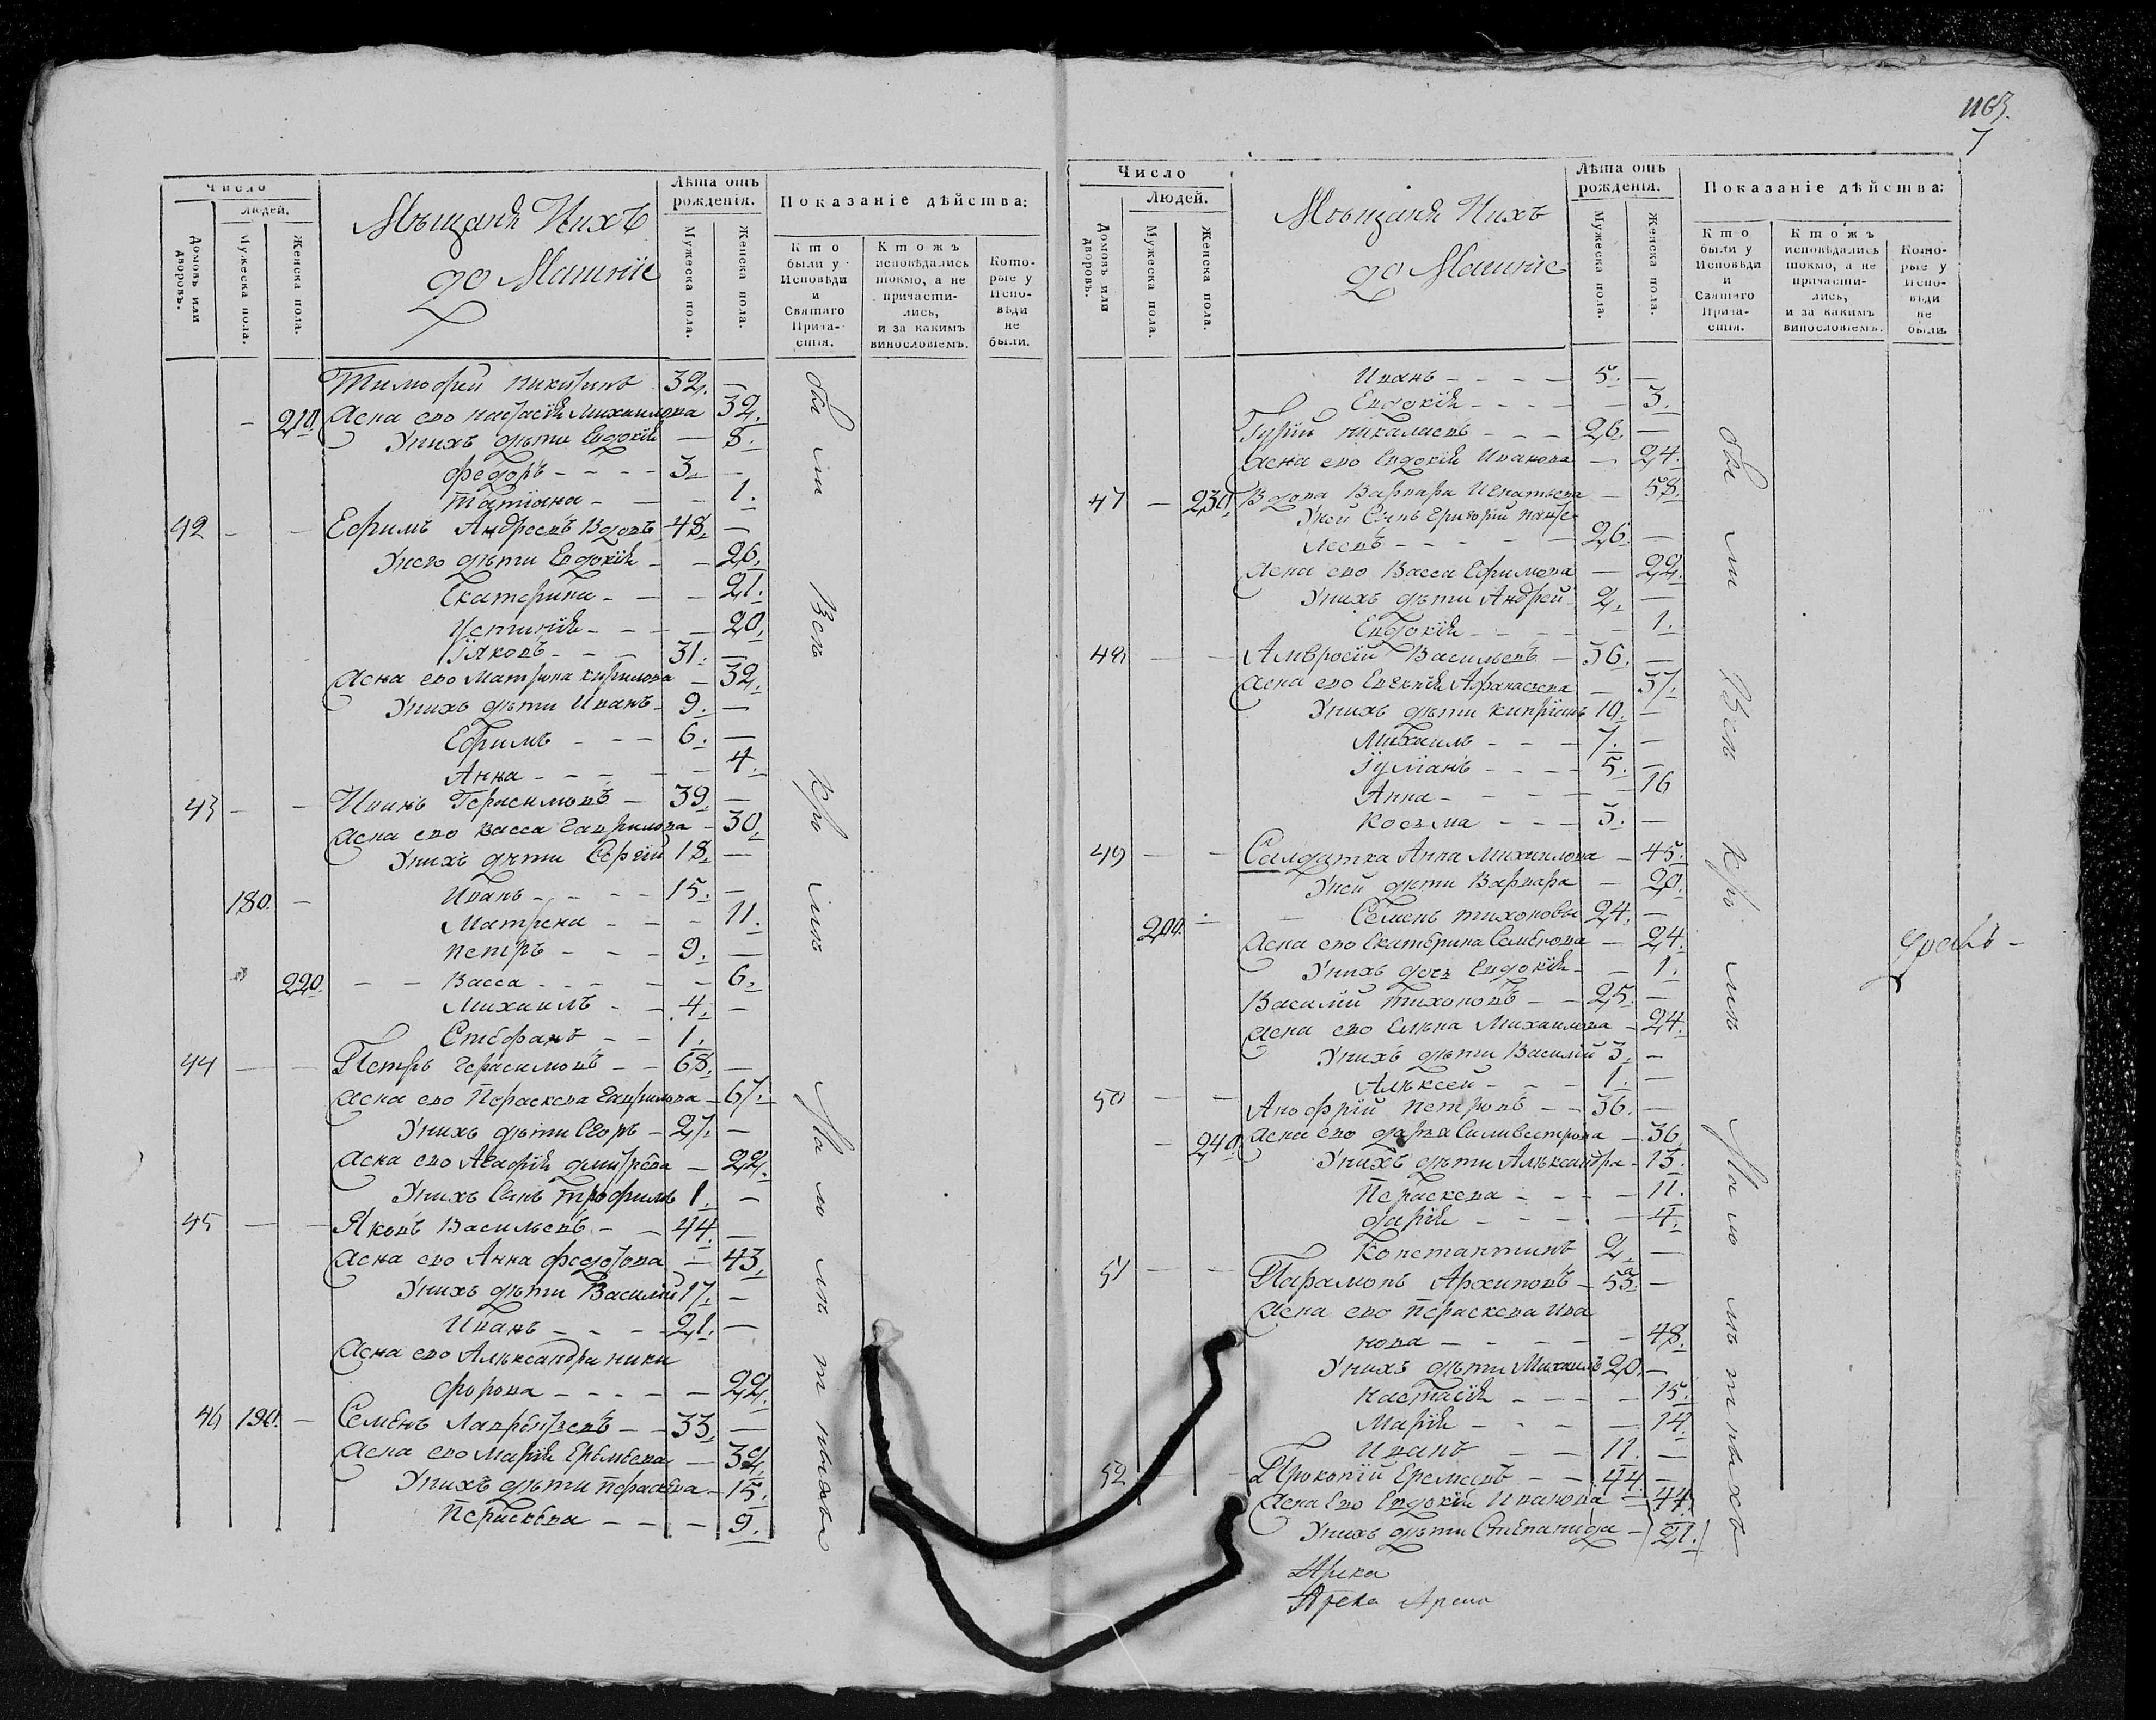 1163.
7
Число
Людей.
Домовъ или дворовъ.
Мужеска пола.
Женска пола.
Мѣщаня Иихъ
до Машніе
Лѣта отъ рожденія.
Мужеска пола.
Женска пола.
Показаніе дѣйства:
Кто были у Исповѣди и Святаго Прича-стія.
Ктожъ исповѣдались токмо, а не причасти-лись, и за какимъ винословіемъ.
Кото-рые у Испо-вѣди не были.
Тимофей никитинъ 32. —
— 210 Жена ево настасія Михаилова 32.
Унихъ дѣти Евдокія — 8.
федоръ - - - - 3. —
татіана - — - 1.
42 - - Ефимъ Андреевъ Вдовъ 48. —
Унего дѣти Евдокія - - 26.
Екатерина - — - 21.
Устинія - - — - 20.
Іяковъ - - - 31. —
Жена ево Матрона кирилова — 32.
Унихъ дѣти Иванъ - 9. —
Ефимъ - - - 6. —
Анна - - - - - 4.
43 - - Иванъ Герасимовъ — 39. —
Жена ево васса гаврилова - 30.
Унихъ дѣти Сергій 18. —
180. - Иванъ - - - - 15. -
Матрена - - - - 11.
петръ - - - 9. —
220. - - Васса - - - - - 6.
Михаилъ - - 4. -
Стефанъ - - 1.
44 — — Петръ герасимовъ - - 68. —
Жена ево Параскева Гаврилова - 67.
Унихъ дѣти Егоръ - 27. —
Жена ево Агафія дмитрева — 22.
Унихъ Сынъ трофимъ 1. —
45 — — Яковъ Васильевъ - - 44. —
Жена ево Анна федотова — 43.
Унихъ дѣти Василій 17. —
Иванъ - - - 21. —
Жена ево Александра ники
форова - - - - — 22.
46 190. - Семенъ Лаврентьевъ - - 33. —
Жена ево Марія Еремѣева — 32.
Унихъ дѣти параскева - 15.
Параскева - - - - 9.
были Всѣ кромѣ Малолѣтныхъ
Число
Людей.
Домовъ или дворовъ.
Мужеска пола.
Женска пола.
Мѣщаня Иихъ
до Машніе
Лѣта отъ рожденія.
Мужеска пола.
Женска пола.
Показаніе дѣйства:
Кто были у Исповѣди и Святаго Прича-стія.
Ктожъ исповѣдались токмо, а не причасти-лись, и за какимъ винословіемъ.
Кото-рые у Испо-вѣди не были.
Иванъ - - - — 5. —
Евдокія - - - - — 3.
Гурій никалаевъ - - - 26. —
Жена ево Евдокія Иванова — 24.
47 - 230. Вдова Варвара Игнатьева — 58.
Уней Сынъ григорій панте-
леевъ - - - - — 26. —
Жена ево Васса Ефимова — 22.
Унихъ дѣти Андрей 2. —
Евдокія - - - - - 1.
48 — — Амвросій Васильевъ — 36. —
Жена ево Евгенія Афанасьева — 37.
Унихъ дѣти киприянъ 10. —
Михаилъ - - - 7. —
Іуліанъ - - - - 5. —
Анна - - - - - - 16
Косьма - - - 3. —
49 — - Салдатка Анна Михаилова — 45.
Уней дѣти Варвара — 20.
- Семенъ тихоновъ 24. —
200. - Жена ево Екатерина Семенова — 24.
Унихъ дочь Евдокія - - 1.
Василій тихоновъ - - 25. —
Жена ево Елена Михаилова - 24.
Унихъ дѣти Василій 3. —
Алѣксей - - - 1. —
50 — — Анофрій петровъ - - 36. —
- 240 Жена ево дарья Силивестрова — 36
Унихъ дѣти Алѣксандра - 13.
Параскева - - - - 11.
дарія - - - - — 4.
Константинъ 2. —
51 — — Парамонъ Архиповъ - 53. —
Жена ево параскева Ива
нова - - - - - - 48.
Унихъ дѣти Михаилъ 20. —
настасія - - - - 15.
Марія - - - — 14.
Иванъ - - - 11. —
52 - Прокопій Еремеевъ - - 44. —
Жена Ево Евдокія Иванова — 44.
Унихъ дѣти Степанида - 21.
были Всѣ кромѣ Малолѣтныхъ